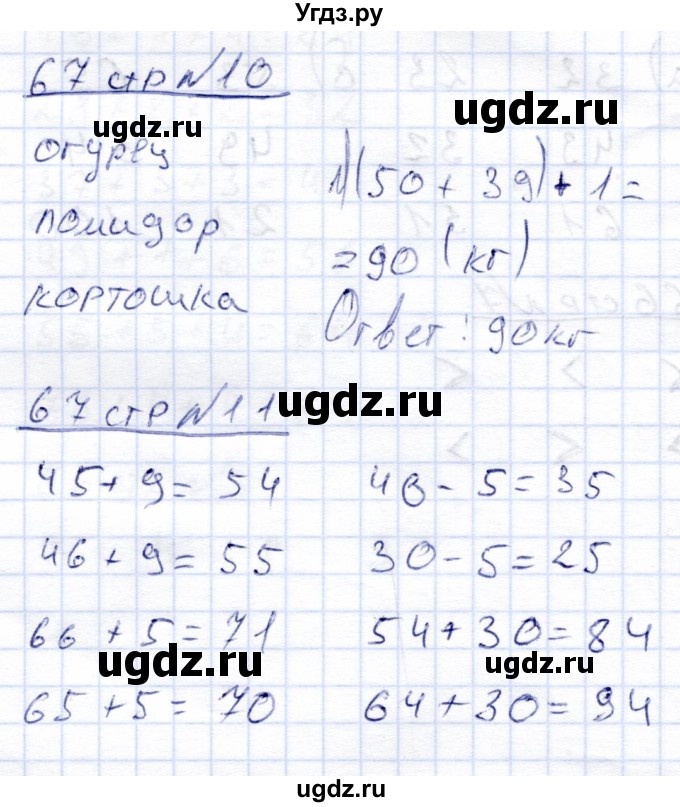 Угдз.ру
67 стр №10
ugdz.ru
ugdz.ru
огурец
помидор
кортошка
1) (50 + 39) + 1 =
= 90 (кг)
Ответ: 90 кг
67 стр №11
ugdz.ru
45 + 9 = 54
46 + 9 = 55
66 + 5 = 71
ugdz.ru
65 + 5 = 70
40 - 5 = 35
30 - 5 = 25
54 + 30 = 84
ugdz.ru
64 + 30 = 94
ugdz.ru